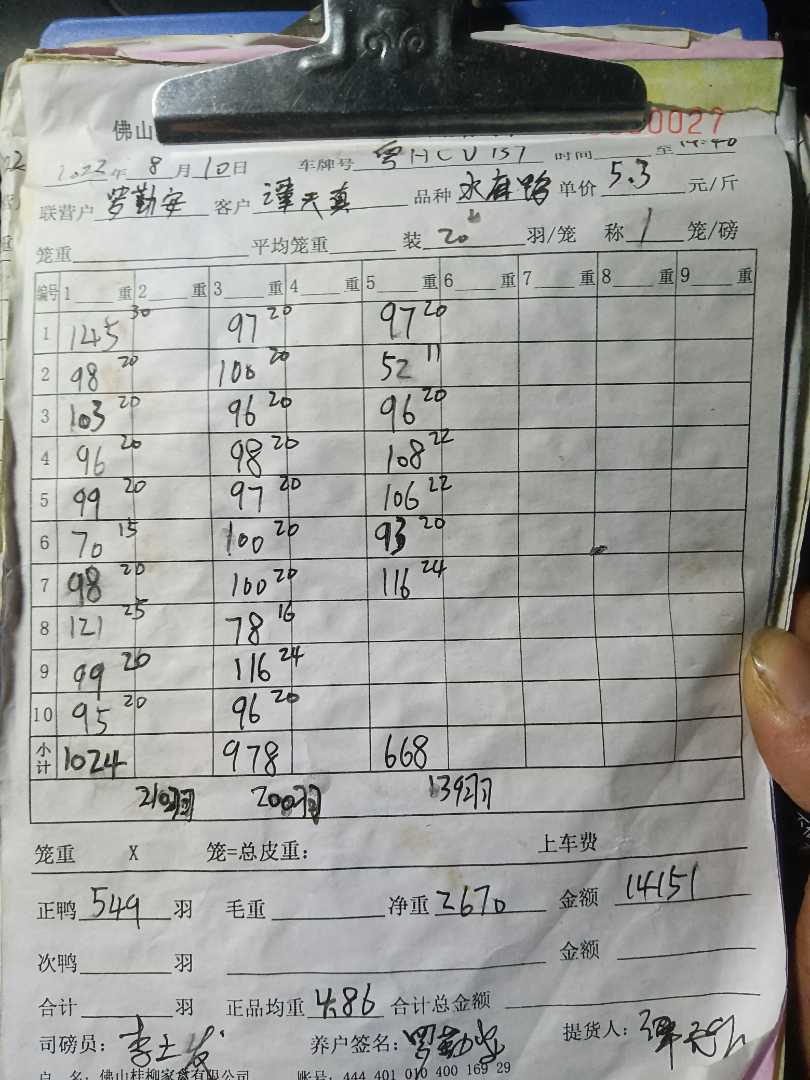 佛山 0027
2022年 8 月 10 日 车牌号 粤HCV151 时间 至 14:40
联营户 罗勤安 客户 谭天真 品种 水麻鸭 单价 5.3 元/斤
笼重 平均笼重 装 20 羽/笼 称 1 笼/磅
编号 1 重 2 重 3 重 4 重 5 重 6 重 7 重 8 重 9 重
1 145 30 97 20 97 20
2 98 20 100 20 52 11
3 103 20 96 20 96 20
4 96 20 98 20 108 22
5 99 20 97 20 106 22
6 70 15 100 20 93 20
7 98 20 100 20 116 24
8 121 25 78 16
9 99 20 116 24
10 95 20 96 20
小计 1024 978 668
210羽 200羽 139羽
笼重 X 笼=总皮重: 上车费
正鸭 549 羽 毛重 净重 2670 金额 14151
次鸭 羽 金额
合计 羽 正品均重 4.86 合计总金额
司磅员: 养户签名: 罗勤安 提货人:
户 名: 佛山桂柳家禽有限公司 账号: 444 401 010 400 169 29